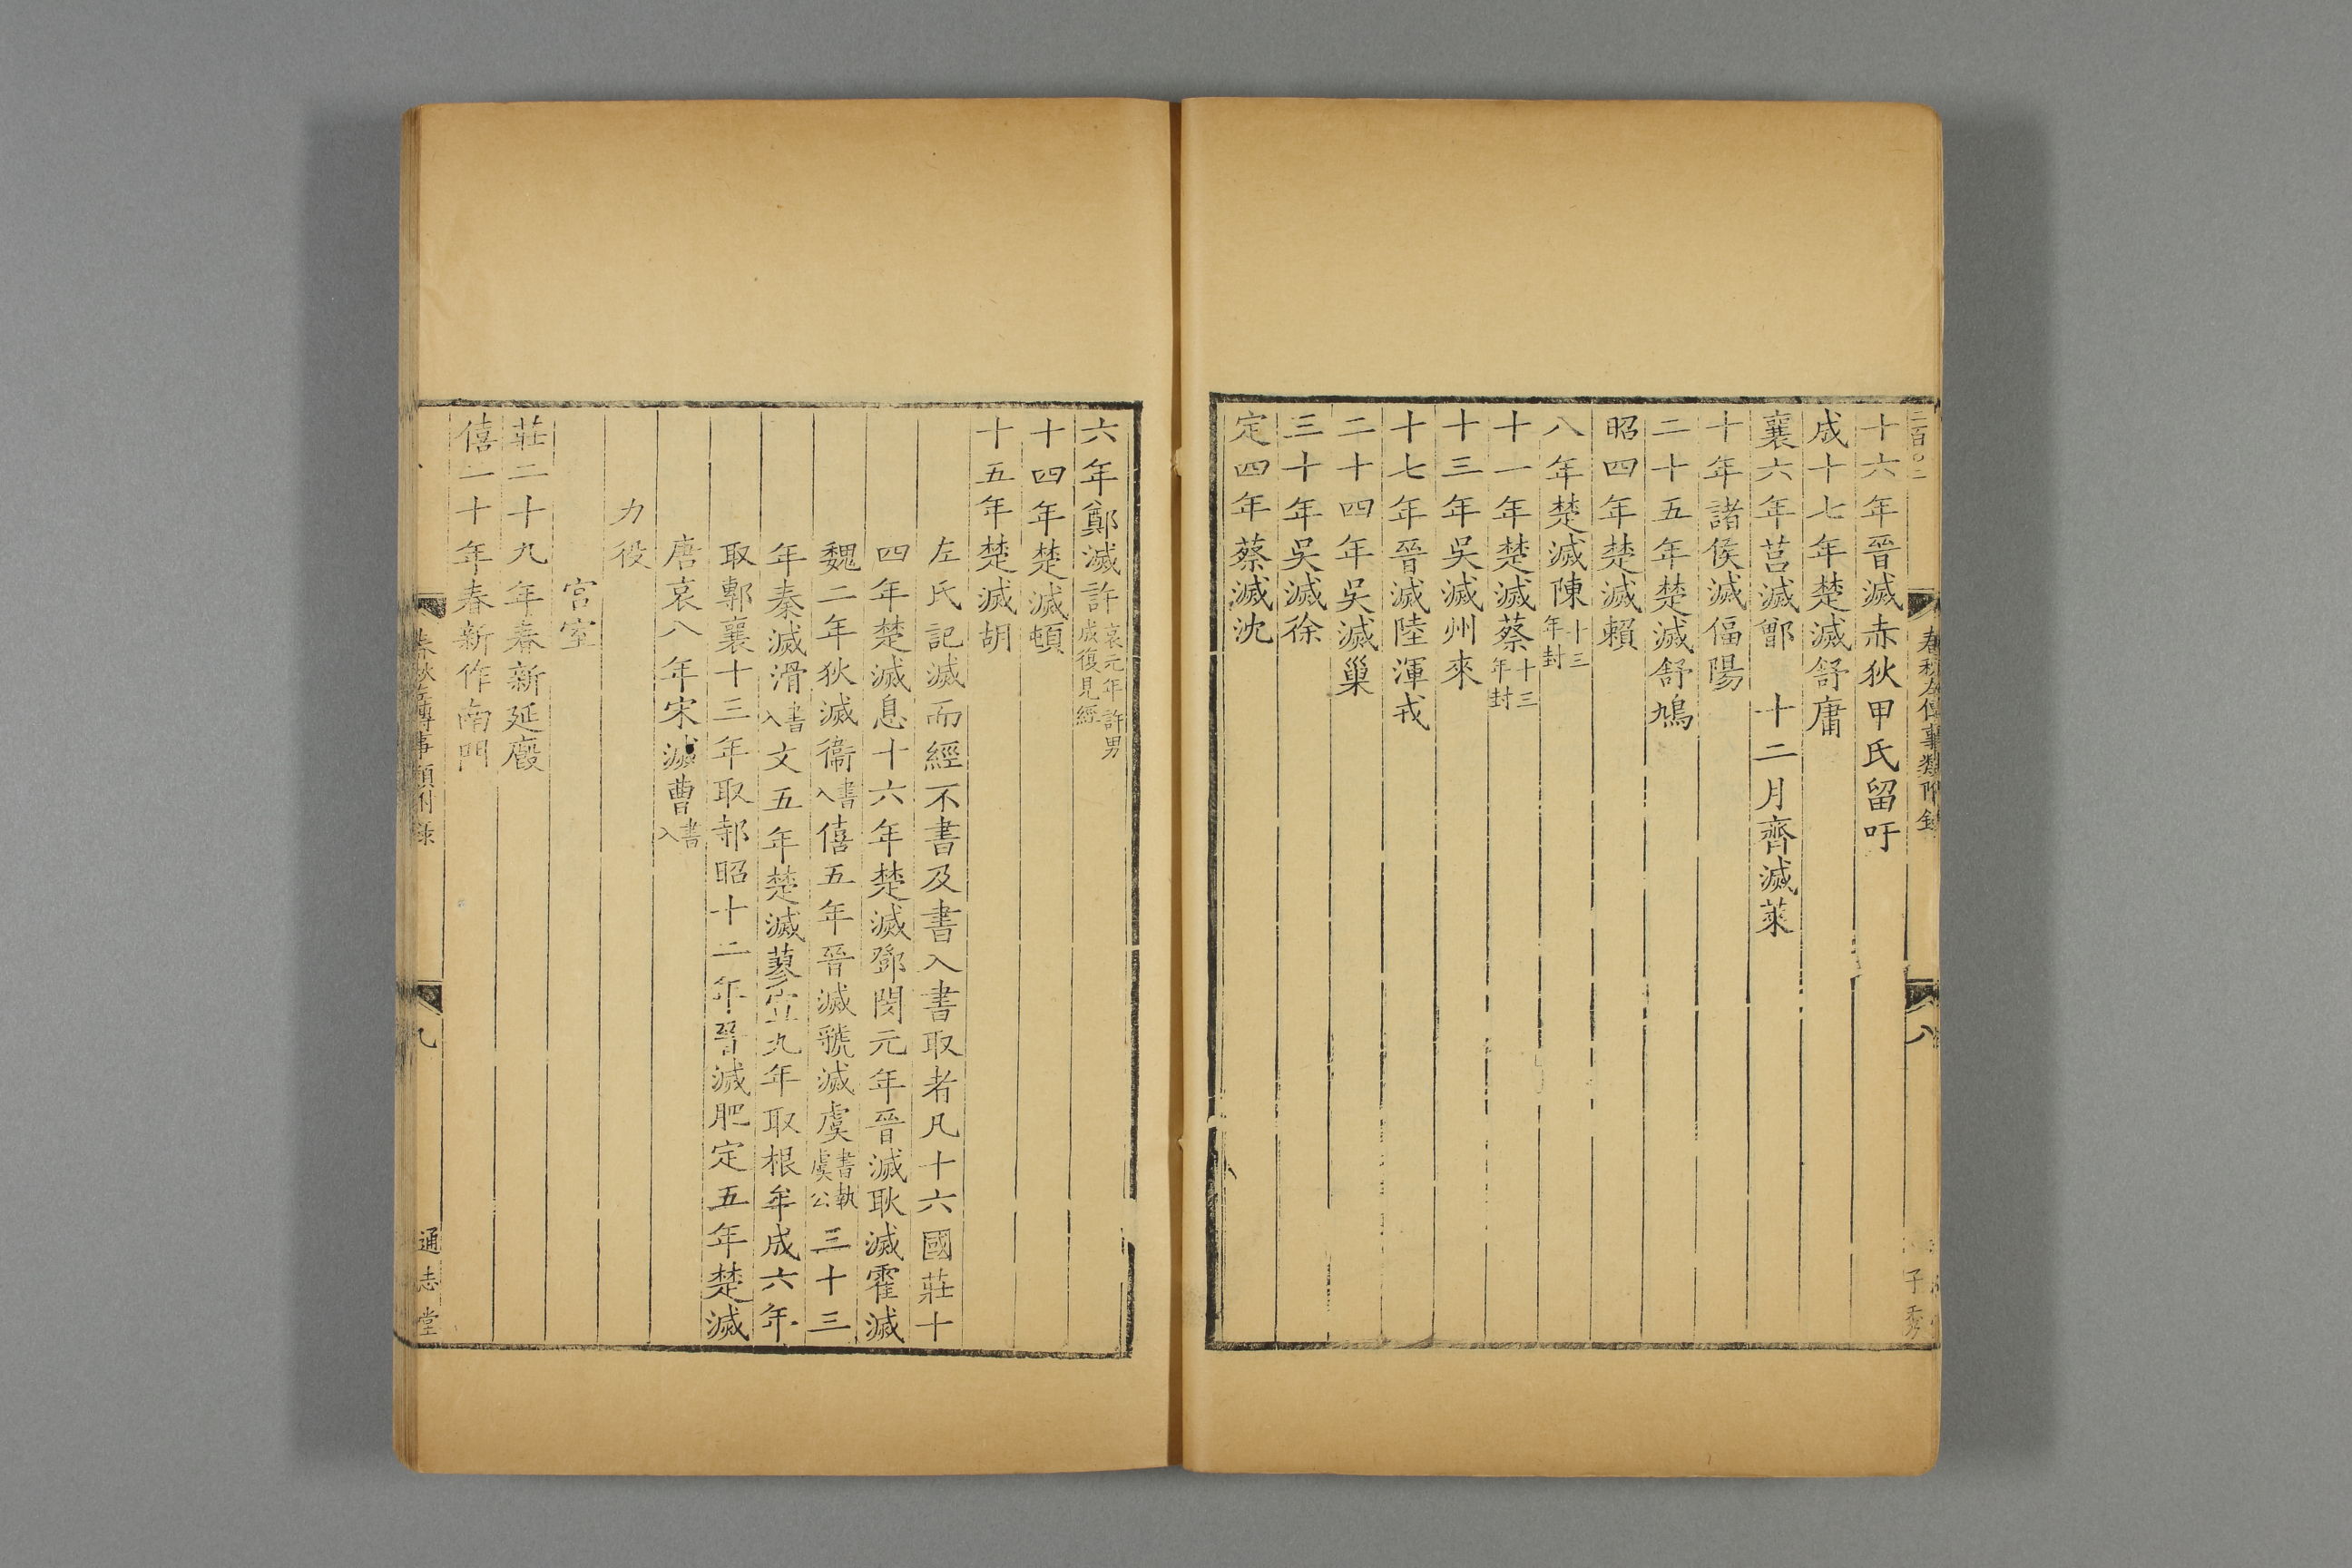 春秋左傳事類附錄
八
十六年晉滅赤狄甲氏留吁
成十七年楚滅舒庸
襄六年莒滅鄫 十二月齊滅萊
十年諸侯滅偪陽
二十五年楚滅舒鳩
昭四年楚滅賴
八年楚滅陳十三年封
十一年楚滅蔡十三年封
十三年吳滅州來
十七年晉滅陸渾戎
二十四年吳滅巢
三十年吳滅徐
定四年蔡滅沈
六年鄭滅許哀元年許男成復見經
十四年楚滅頓
十五年楚滅胡
左氏記滅而經不書及書入書取者凡十六國莊十
四年楚滅息十六年楚滅鄧閔元年晉滅耿滅霍滅
魏二年狄滅衞書入僖五年晉滅虢滅虞書執虞公三十三
年秦滅滑書入文五年楚滅蓼宣九年取根牟成六年
取鄟襄十三年取邿昭十二年晉滅肥定五年楚滅
唐哀八年宋滅曹書入
力役
宮室
莊二十九年春新延廄
僖二十年春新作南門
春秋左傳事類附錄
九
通志堂